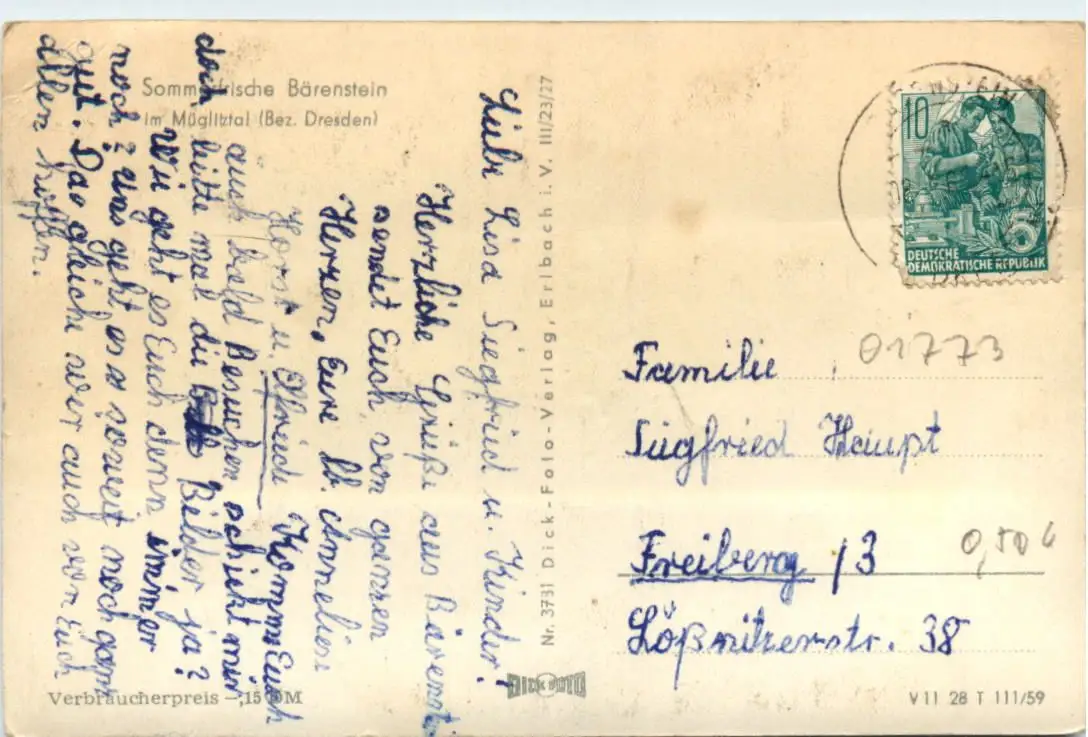 Sommerfrische Bärenstein
im Müglitztal (Bez. Dresden)
Liebe Lisa Siegfried u. Kinder!
Herzliche Grüße aus Bärenst.
sendet Euch von ganzen
Herzen, Eure lb. Annelies
Horst u. Elfriede Komme Euch
auch bald Besuchen schickt mir
doch bitte mal die Bilder ja?
Wie geht es Euch denn immer
noch? uns geht es soweit noch ganz
gut. Das gleiche wir auch von Euch
allen hoffen.
Verbraucherpreis -,15 DM
Nr. 3731 Dick-Foto-Verlag, Erlbach i. V. III/23/27
DICK FOTO
10
5
DEUTSCHE
DEMOKRATISCHE REPUBLIK
01773
Familie
Siegfried Haupt
Freiberg /3
0,50
Lößnitzerstr. 38
V 11 28 T 111/59